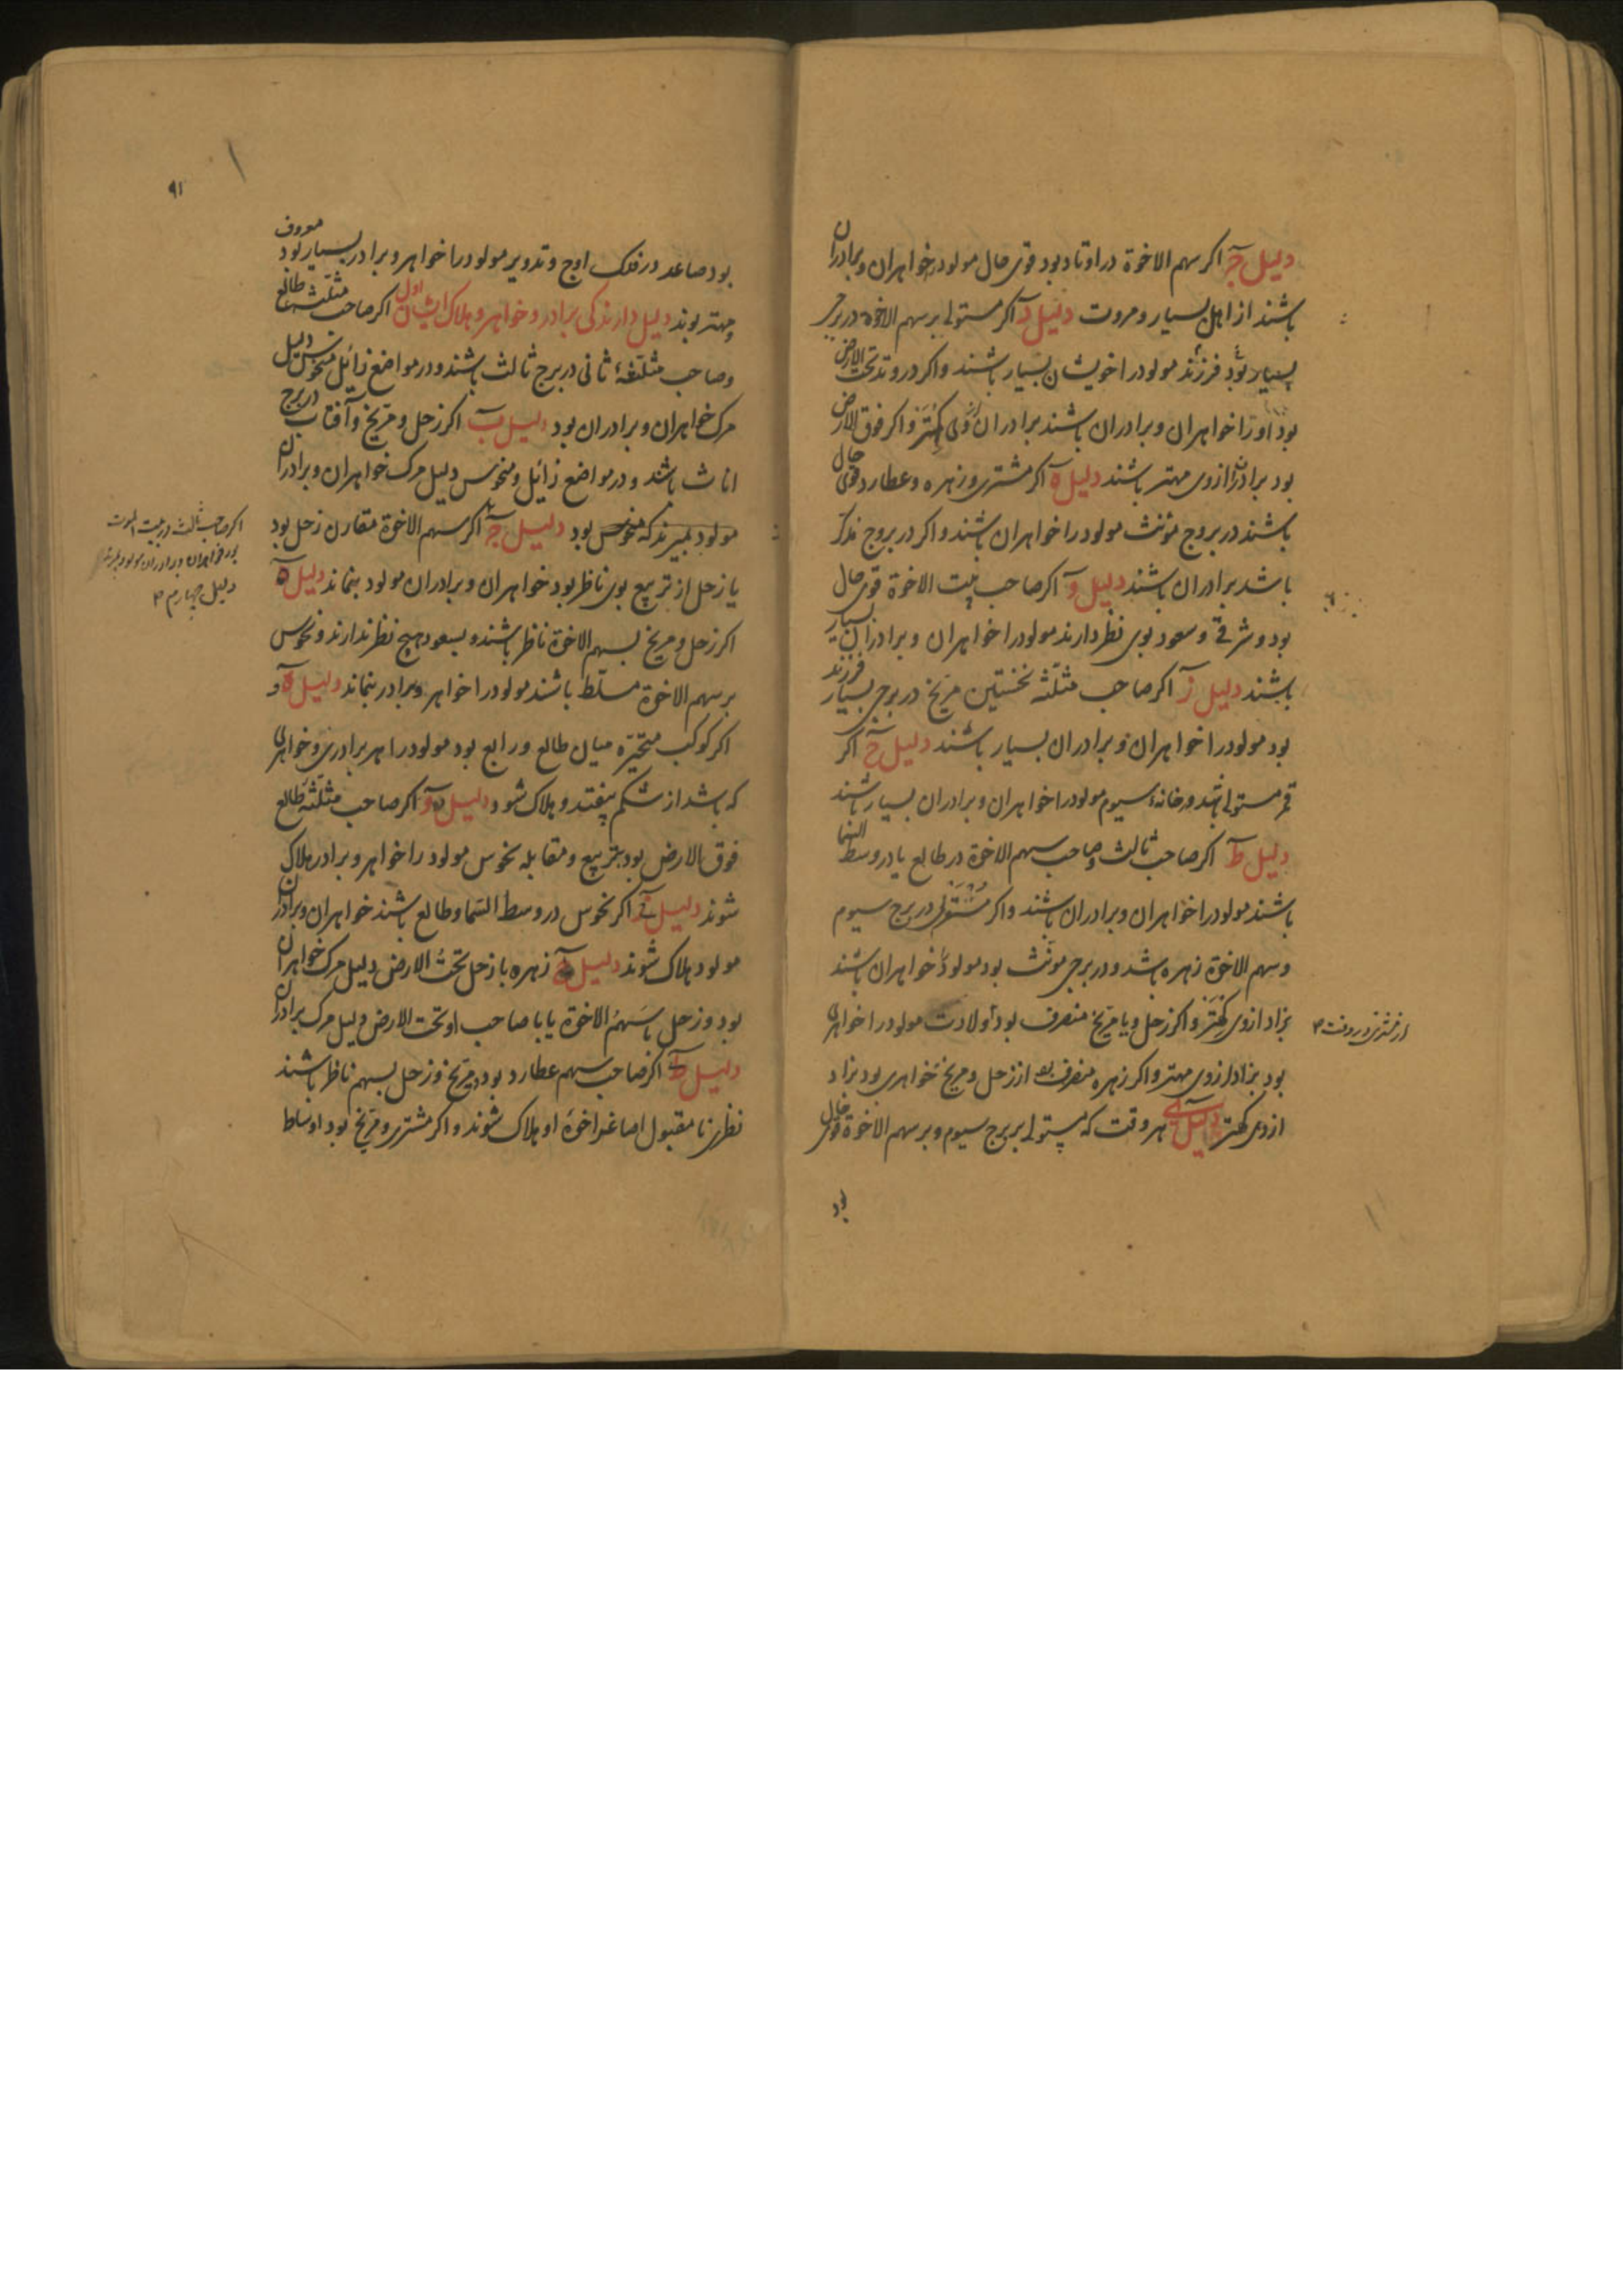 دلیل جـ اکر سهم الاخوة در اوتاد بود قوی حال مولود را خواهران و برادران
باشند از اهل بسیار و مروت دلیل د اکر مستولی بر سهم الاخوة در برج
بسیار بود فرزند مولود را خویشان بسیار باشند واکر در وتد تحت الارض
بود او را خواهران و برادران باشند برادران از وی کهتر و اکر فوق الارض
بود برادران از وی مهتر باشند دلیل ه اکر مشتری و زهره و عطارد قوی حال
باشند در بروج مؤنث مولود را خواهران باشند و اکر در بروج مذکر
باشد برادران باشند دلیل و اکر صاحب بیت الاخوة قوی حال
بود و شرقی و سعود بوی نظر دارند مولود را خواهران و برادران بسیار
باشند دلیل ز اکر صاحب مثلثه نخستین مریخ در برجی بسیار فرزند
بود مولود را خواهران و برادران بسیار باشند دلیل ح اکر
قمر مستولی باشد در خانهٔ سیوم مولود را خواهران و برادران بسیار باشند
دلیل ط اکر صاحب ثالث و صاحب سهم الاخوة در طالع یا در وسط السما
باشند مولود را خواهران و برادران باشند واکر مستولی در برج سیوم
و سهم الاخوة زهره باشد و در برجی مونث بود مولود را خواهران باشند
بزاد از وی کهتر و اکر زحل و یا مریخ منصرف بود اولادت مولود را خواهری
بود بزاد از وی مهتر و اکر زهره منصرف بود از زحل و مریخ خواهری بود بزاد
از وی کهتر دلیل ی هر وقت که مستولی بر برج سیوم و بر سهم الاخوة قوی حال
بود
۹۱
بود صاعد در فلک اوج و تدویر مولود را خواهر و برادر بسیار بود معروف
و مهتر بوند دلیل دارندکی برادر و خواهر و هلاک ایشان اول اکر صاحب مثلثه طالع
و صاحب مثلثهٔ ثانی در برج ثالث باشند و در مواضع زائل منحوس دلیل
مرک خواهران و برادران بود دلیل ب اکر زحل و مریخ و آفتاب در برج
اناث باشند و در مواضع زائل و منحوس دلیل مرک خواهران و برادران
مولود بمیرند که منحوس بود دلیل جـ اکر سهم الاخوة مقارن زحل بود
یا زحل از تربیع بوی ناظر بود خواهران و برادران مولود بنماند دلیل ه
اکر زحل و مریخ بسهم الاخوة ناظر باشند و بسعود هیچ نظر ندارند و نحوس
بر سهم الاخوة مسلط باشند مولود را خواهر و برادر بنماند دلیل و
اکر کوکب متحیره میان طالع و رابع بود مولود را هر برادری و خواهری
که باشد از شکم بیفتد و هلاک شود دلیل و اکر صاحب مثلثهٔ طالع
فوق الارض بود بتربیع و مقابله نحوس مولود را خواهر و برادر هلاک
شوند دلیل ز اکر نحوس در وسط السما و طالع باشند خواهران و برادران
مولود هلاک شوند دلیل ح زهره با زحل تحت الارض دلیل مرک خواهران
بود و زحل با سهم الاخوة یا با صاحب او تحت الارض دلیل مرک برادران
دلیل ط اکر صاحب سهم عطارد بود و مریخ و زحل بسهم ناظر باشند
نظر نامقبول اصاغر اخوهٔ او هلاک شوند و اکر مشتری و مریخ بود اوساط
اکر صاحب ثالث در بیت الموت
بود خواهران و برادران مولود بمیرند
دلیل چهارم